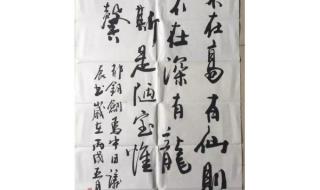 不在高有仙則
不在深有龍
斯是陋室惟
馨
歲在丙戌五月